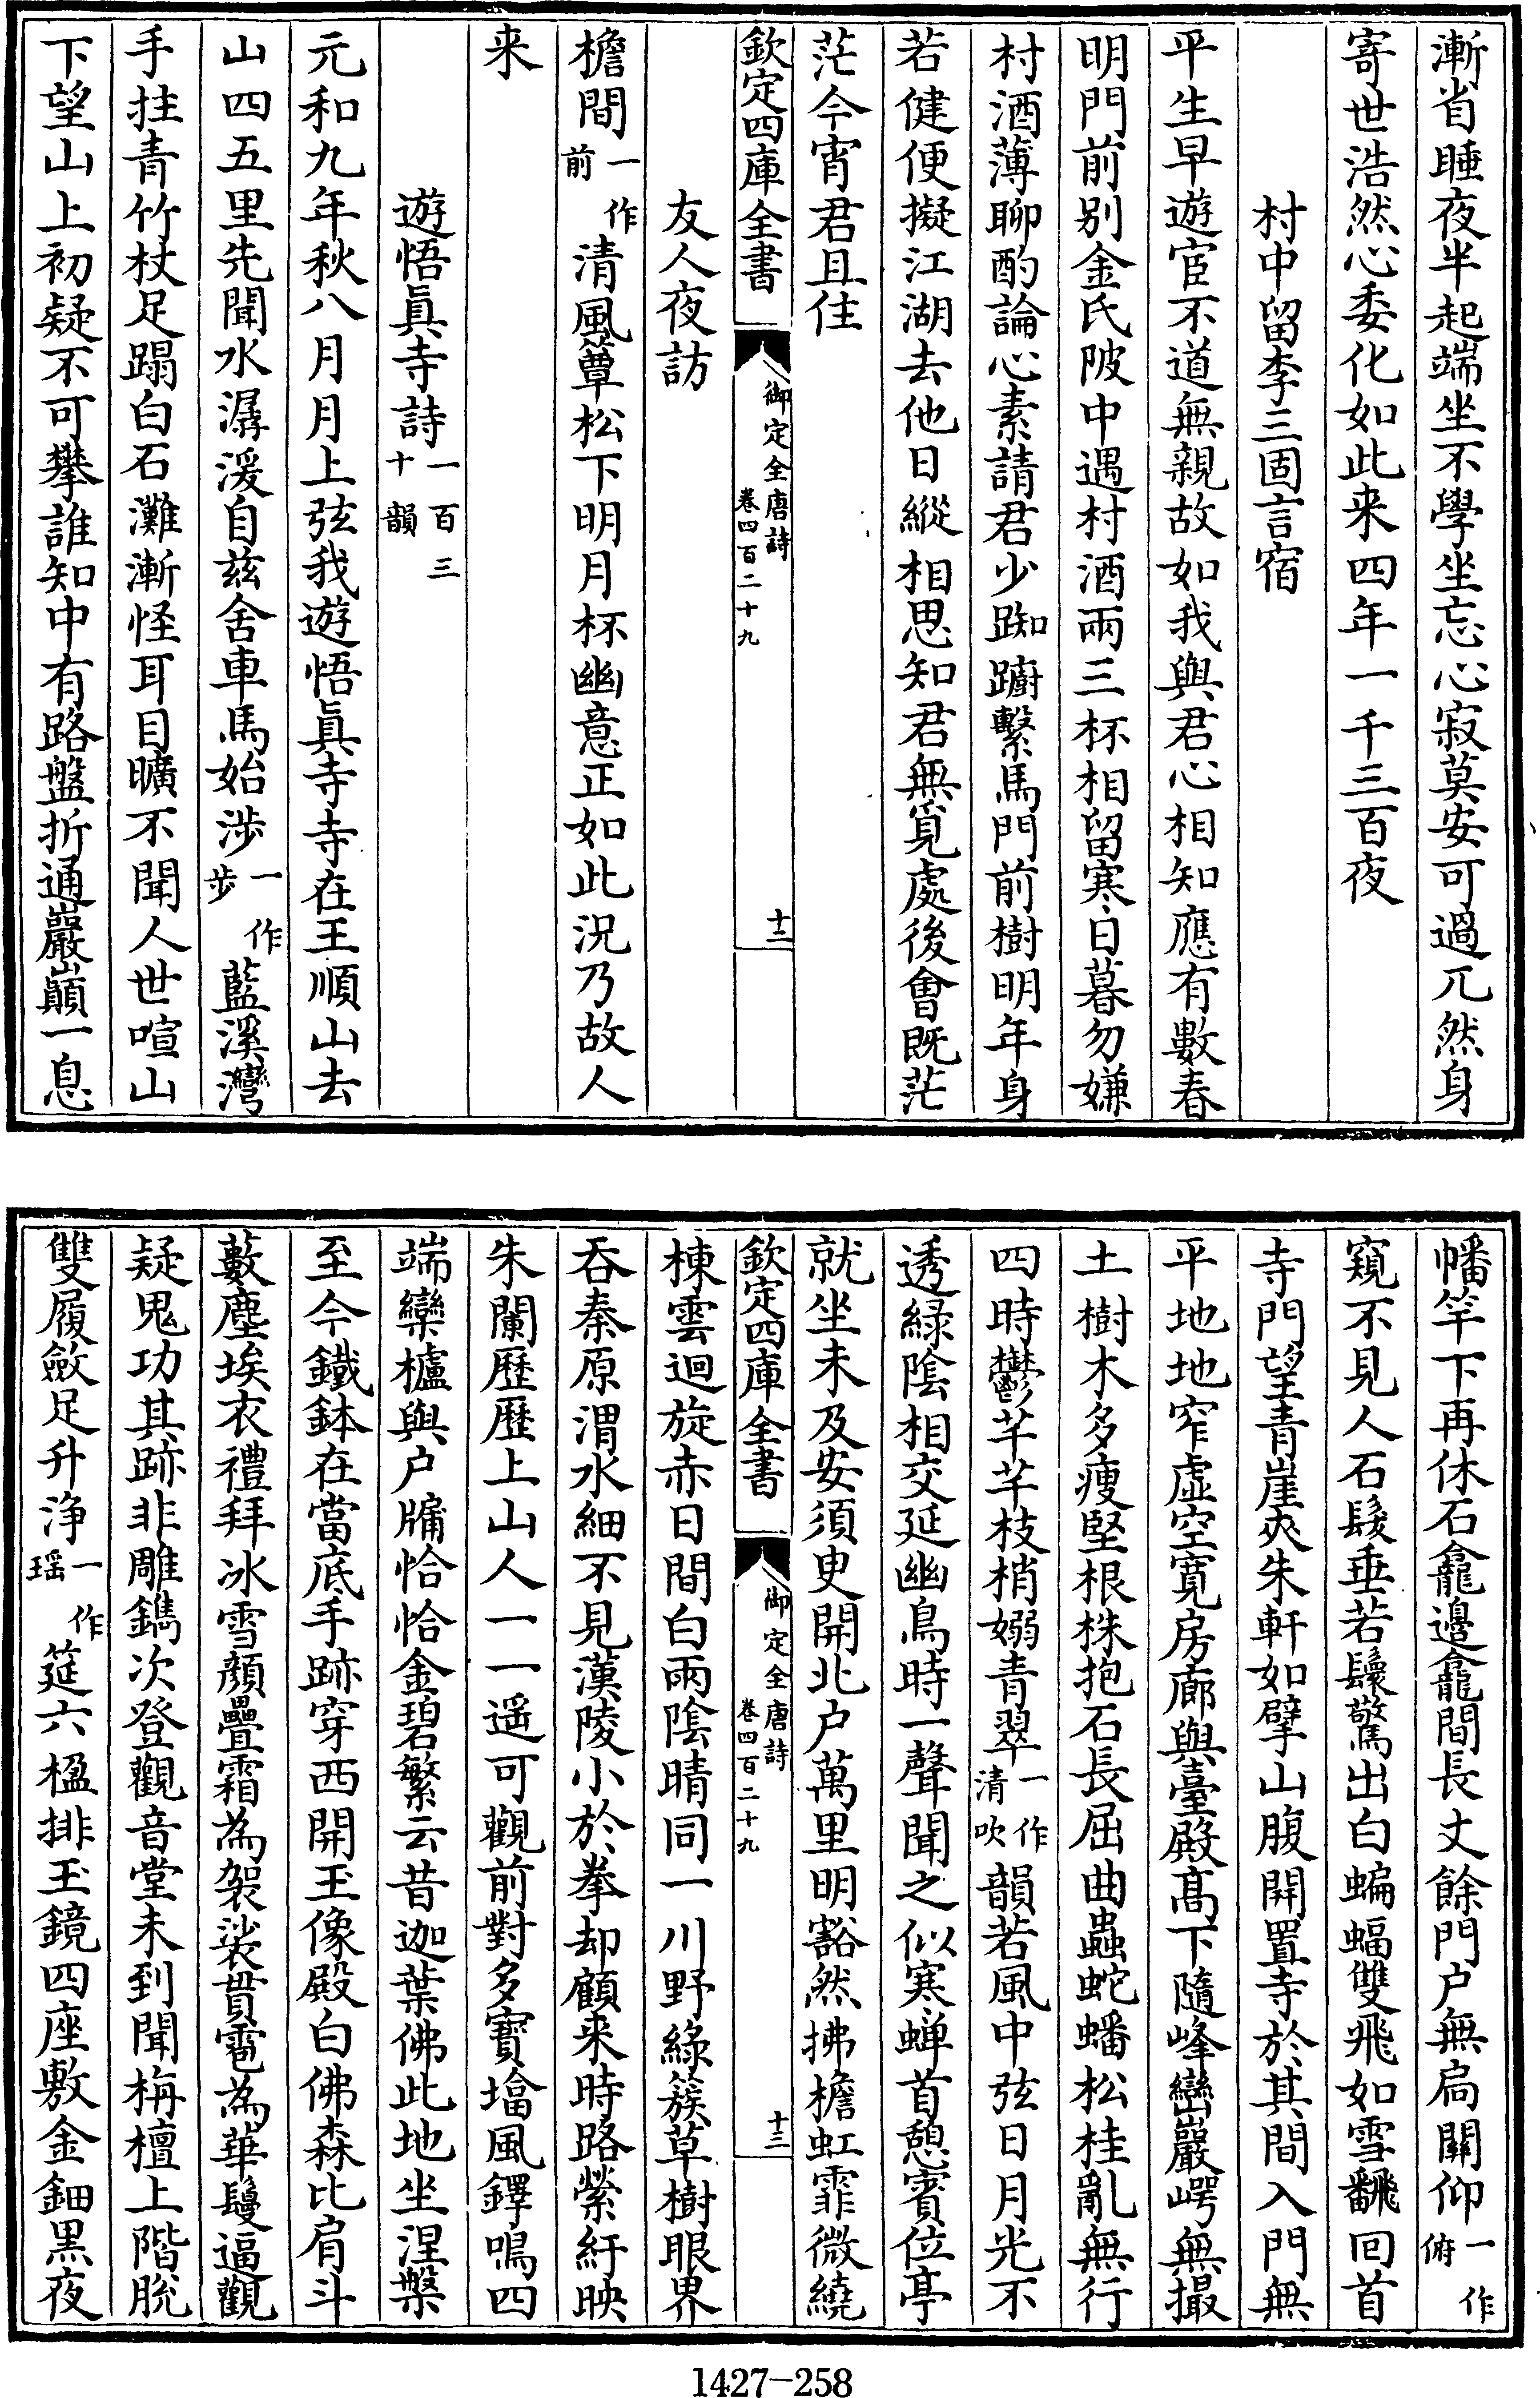 漸省睡夜半起端坐不學坐忘心寂莫安可過兀然身
寄世浩然心委化如此来四年一千三百夜
村中留李三固言宿
平生早遊宦不道無親故如我與君心相知應有數春
明門前别金氏陂中遇村酒兩三杯相留寒日暮勿嫌
村酒薄聊酌論心素請君少踟躕繫馬門前樹明年身
若健便擬江湖去他日縱相思知君無覓處後會既茫
茫今宵君且住
欽定四庫全書 御定全唐詩 卷四百二十九 十二
友人夜訪
檐間一作前清風簟松下明月杯幽意正如此況乃故人
来
遊悟眞寺詩一百三十韻
元和九年秋八月月上弦我遊悟眞寺寺在王順山去
山四五里先聞水潺湲自兹舍車馬始涉一作步藍溪灣
手拄青竹杖足蹋白石灘漸怪耳目曠不聞人世喧山
下望山上初疑不可攀誰知中有路盤折通巖巔一息
幡竿下再休石龕邊龕間長丈餘門户無扃關仰一作俯
窺不見人石髮垂若鬟驚出白蝙蝠雙飛如雪翻回首
寺門望青崖夾朱軒如擘山腹開置寺於其間入門無
平地地窄虚空寛房廊與臺殿高下隨峰巒巖崿無撮
土樹木多瘦堅根株抱石長屈曲蟲蛇蟠松桂亂無行
四時鬱芊芊枝梢嫋青翠一作清吹韻若風中弦日月光不
透緑陰相交延幽鳥時一聲聞之似寒蝉首憩賓位亭
就坐未及安須臾開北户萬里明豁然拂檐虹霏微繞
欽定四庫全書 御定全唐詩 卷四百二十九 十三
棟雲迴旋赤日間白雨陰晴同一川野綠簇草樹眼界
吞秦原渭水細不見漢陵小於拳却顧来時路縈紆映
朱闌歷歷上山人一一遥可觀前對多寳塔風鐸鳴四
端欒櫨與户牖恰恰金碧繁云昔迦葉佛此地坐涅槃
至今鐵鉢在當底手跡穿西開玉像殿白佛森比肩斗
藪塵埃衣禮拜冰雪顔疊霜為袈裟貫雹為華鬘逼觀
疑鬼功其跡非雕鐫次登觀音堂未到聞栴檀上階脱
雙履斂足升浄一作瑶筵六楹排玉鏡四座敷金鈿黑夜
1427-258